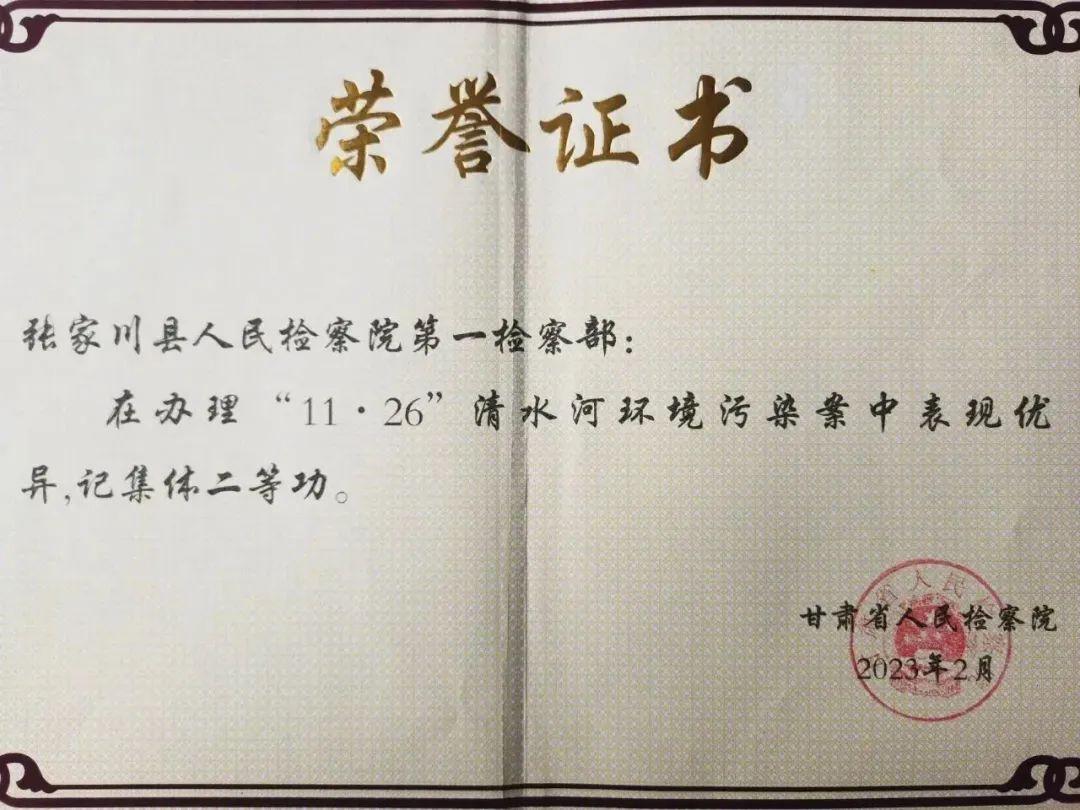 荣誉证书
张家川县人民检察院第一检察部：
在办理“11·26”清水河环境污染案中表现优
异,记集体二等功。
甘肃省人民检察院
2023年2月